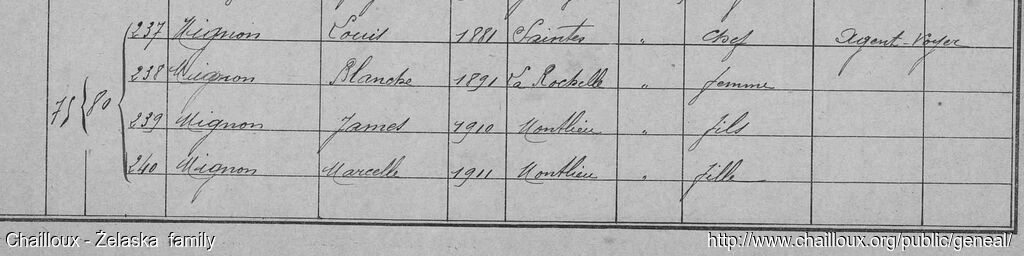 237 Mignon Louis 1881 Saintes " chef Agent-Voyer
238 Mignon Blanche 1891 La Rochelle " femme
75 80
239 Mignon James 1910 Montlieu " fils
240 Mignon Marcelle 1911 Montlieu " fille
Chailloux - Želaska family
http://www.chailloux.org/public/geneal/